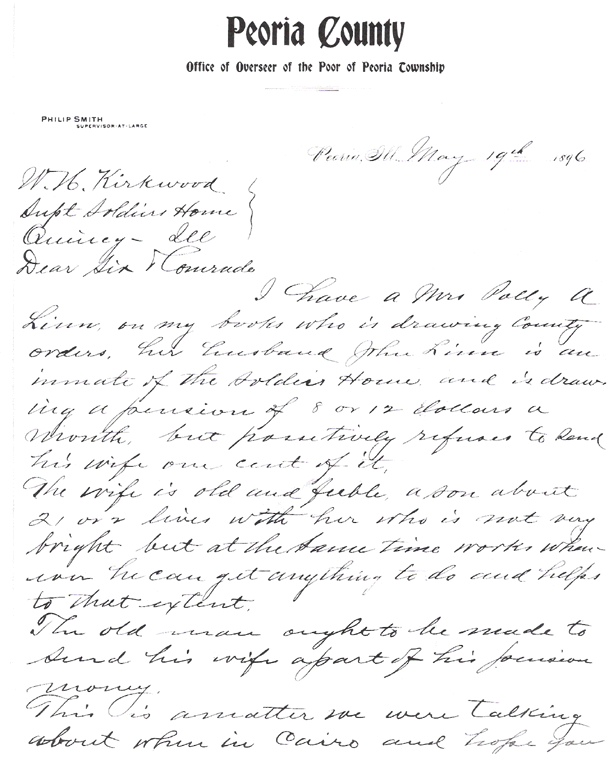 Peoria County
Office of Overseer of the Poor of Peoria Township
PHILIP SMITH
SUPERVISOR-AT-LARGE
Peoria, Ill. May 19th 1896
W. H. Kirkwood
Supt Soldiers Home
Quincy - Ill
Dear Sir & Comrade
I have a Mrs Polly A
Linn, on my books who is drawing County
orders, her husband John Linn is an
inmate of the Soldiers Home and is draw
ing a pension of 8 or 12 dollars a
month, but possitively refuses to send
his wife one cent of it.
The wife is old and feeble, a son about
21 or 2 lives with her who is not very
bright but at the same time works when-
ever he can get anything to do and helps
to that extent.
The old man ought to be made to
send his wife a part of his pension
money.
This is a matter we were talking
about when in Cairo and hope you